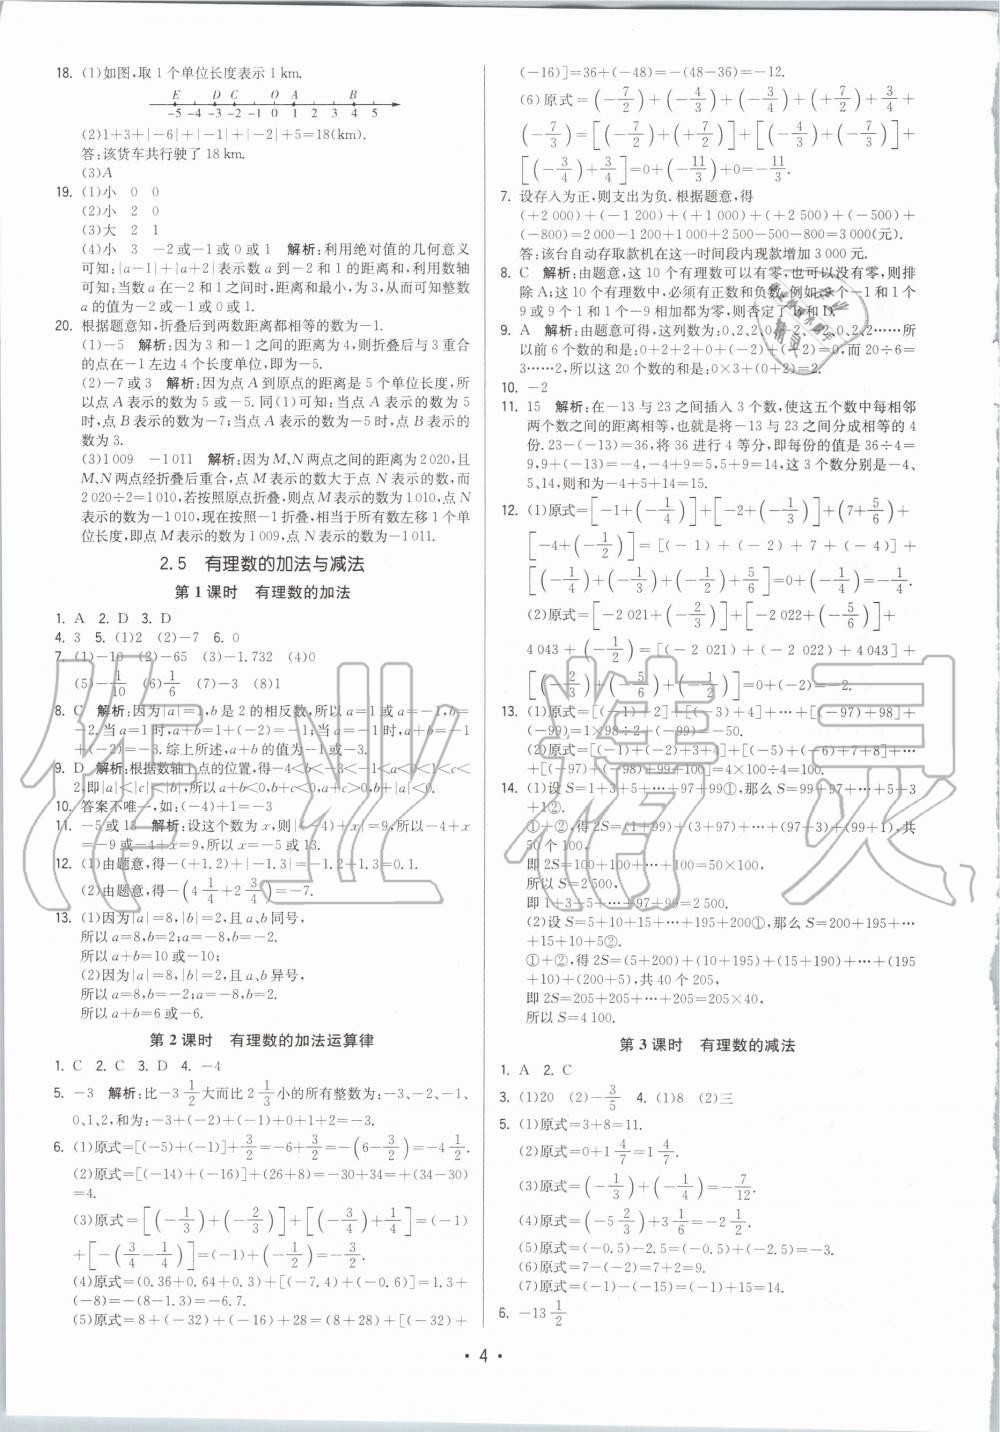 18. (1)如图,取1个单位长度表示1 km.
E D C O A B
-5 -4 -3 -2 -1 0 1 2 3 4 5
(2)1+3+|-6|+|-1|+|-2|+5=18(km).
答:该货车共行驶了18 km.
(3)A
19. (1)小 0 0
(2)小 2 0
(3)大 2 1
(4)小 3 -2或-1或0或1 解析:利用绝对值的几何意义
可知:|a-1|+|a+2|表示数a到-2和1的距离和,利用数轴
可知:当数a在-2和1之间时,距离和最小,为3,从而可知整数
a的值为-2或-1或0或1.
20. 根据题意知,折叠后到两数距离都相等的数为-1.
(1)-5 解析:因为3和-1之间的距离为4,则折叠后与3重合
的点在-1左边4个长度单位,即为-5.
(2)-7或3 解析:因为点A到原点的距离是5个单位长度,所
以点A表示的数为5或-5.同(1)可知:当点A表示的数为5
时,点B表示的数为-7;当点A表示的数为-5时,点B表示的
数为3.
(3)1 009 -1 011 解析:因为M、N两点之间的距离为2 020,且
M、N两点经折叠后重合,点M表示的数大于点N表示的数,而
2 020÷2=1 010,若按照原点折叠,则点M表示的数为1 010,点N
表示的数为-1 010,现在按照-1折叠,相当于所有数左移1个单
位长度,即点M表示的数为1 009,点N表示的数为-1 011.
2.5 有理数的加法与减法
第1课时 有理数的加法
1. A 2. D 3. D
4. 3 5. (1)2 (2)-7 6. 0
7. (1)-10 (2)-65 (3)-1.732 (4)0
(5)-1/10 (6)1/6 (7)-3 (8)1
8. C 解析:因为|a|=1,b是2的相反数,所以a=1或a=-1,b=
-2.当a=1时,a+b=1+(-2)=-1;当a=-1时,a+b=-1
+(-2)=-3.综上所述,a+b的值为-1或-3.
9. D 解析:根据数轴上点的位置,得-4<b<-3<-1<a<0<1<c<
2,即|a|<|c|<|b|,所以a+b<0,b+c<0,a+c>0,b+|a|<0.
10. 答案不唯一,如:(-4)+1=-3
11. -5或13 解析:设这个数为x,则|(-4)+x|=9,所以-4+x
=-9或-4+x=9,所以x=-5或13.
12. (1)由题意,得-(+1.2)+|-1.3|=-1.2+1.3=0.1.
(2)由题意,得-(4 1/4+2 3/4)=-7.
13. (1)因为|a|=8,|b|=2,且a、b同号,
所以a=8,b=2;a=-8,b=-2.
所以a+b=10或-10;
(2)因为|a|=8,|b|=2,且a、b异号,
所以a=8,b=-2;a=-8,b=2.
所以a+b=6或-6.
第2课时 有理数的加法运算律
1. C 2. C 3. D 4. -4
5. -3 解析:比-3 1/2大而比2 1/3小的所有整数为:-3、-2、-1、
0、1、2,和为:-3+(-2)+(-1)+0+1+2=-3.
6. (1)原式=[(-5)+(-1)]+3/2=-6+3/2=-(6-3/2)=-4 1/2.
(2)原式=[(-14)+(-16)]+(26+8)=-30+34=+(34-30)
=4.
(3)原式=[(-1/3)+(-2/3)]+[(-3/4)+1/4]=(-1)
+[-(3/4-1/4)]=(-1)+(-1/2)=-3/2.
(4)原式=(0.36+0.64+0.3)+[(-7.4)+(-0.6)]=1.3+
(-8)=-(8-1.3)=-6.7.
(5)原式=8+(-32)+(-16)+28=(8+28)+[(-32)+
(-16)]=36+(-48)=-(48-36)=-12.
(6)原式=(-7/2)+(-4/3)+(-3/4)+(+7/2)+3/4+
(-7/3)=[(-7/2)+(+7/2)]+[(-4/3)+(-7/3)]+
[(-3/4)+3/4]=0+(-11/3)+0=-11/3.
7. 设存入为正,则支出为负.根据题意,得
(+2 000)+(-1 200)+(+1 000)+(+2 500)+(-500)+
(-800)=2 000-1 200+1 000+2 500-500-800=3 000(元).
答:该台自动存取款机在这一时间段内现款增加3 000元.
8. C 解析:由题意,这10个有理数可以有零,也可以没有零,则排
除A;这10个有理数中,必须有正数和负数,例如,9个-1和1个
9或9个1和1个-9相加都为零,则否定了B和D.
9. A 解析:由题意可得,这列数为:0、2、2、0、-2、-2、0、2、2……所
以前6个数的和是:0+2+2+0+(-2)+(-2)=0,而20÷6=
3……2,所以这20个数的和是:0×3+(0+2)=2.
10. -2
11. 15 解析:在-13与23之间插入3个数,使这五个数中每相邻
两个数之间的距离相等,也就是将-13与23之间分成相等的4
份.23-(-13)=36,将36进行4等分,即每份的值是36÷4=
9,9+(-13)=-4,-4+9=5,5+9=14,这3个数分别是-4、
5、14,则和为-4+5+14=15.
12. (1)原式=[-1+(-1/4)]+[-2+(-1/3)]+(7+5/6)+
[-4+(-1/2)]=[(-1)+(-2)+7+(-4)]+
[(-1/4)+(-1/3)+5/6+(-1/2)]=0+(-1/4)=-1/4.
(2)原式=[-2 021+(-2/3)]+[-2 022+(-5/6)]+
4 043+(-1/2)=[(-2 021)+(-2 022)+4 043]+
[(-2/3)+(-5/6)+(-1/2)]=0+(-2)=-2.
13. (1)原式=[(-1)+2]+[(-3)+4]+…+[(-97)+98]+
(-99)=1×98÷2+(-99)=-50.
(2)原式=[(-1)+(-2)+3+4]+[(-5)+(-6)+7+8]+…
+[(-97)+(-98)+99+100]=4×100÷4=100.
14. (1)设S=1+3+5+…+97+99①,那么S=99+97+…+5+3
+1②.
①+②,得2S=(1+99)+(3+97)+…+(97+3)+(99+1),共
50个100,
即2S=100+100+…+100=50×100,
所以S=2 500,
即1+3+5+…+97+99=2 500.
(2)设S=5+10+15+…+195+200①,那么S=200+195+…
+15+10+5②.
①+②,得2S=(5+200)+(10+195)+(15+190)+…+(195
+10)+(200+5),共40个205,
即2S=205+205+…+205=205×40,
所以S=4 100.
第3课时 有理数的减法
1. A 2. C
3. (1)20 (2)-3/5 4. (1)8 (2)三
5. (1)原式=3+8=11.
(2)原式=0+1 4/7=1 4/7.
(3)原式=(-1/3)+(-1/4)=-7/12.
(4)原式=(-5 2/3)+3 1/6=-2 1/2.
(5)原式=(-0.5)-2.5=(-0.5)+(-2.5)=-3.
(6)原式=7-(-2)=7+2=9.
(7)原式=(-1)-(-15)=(-1)+15=14.
6. -13 1/2
• 4 •
作业精灵